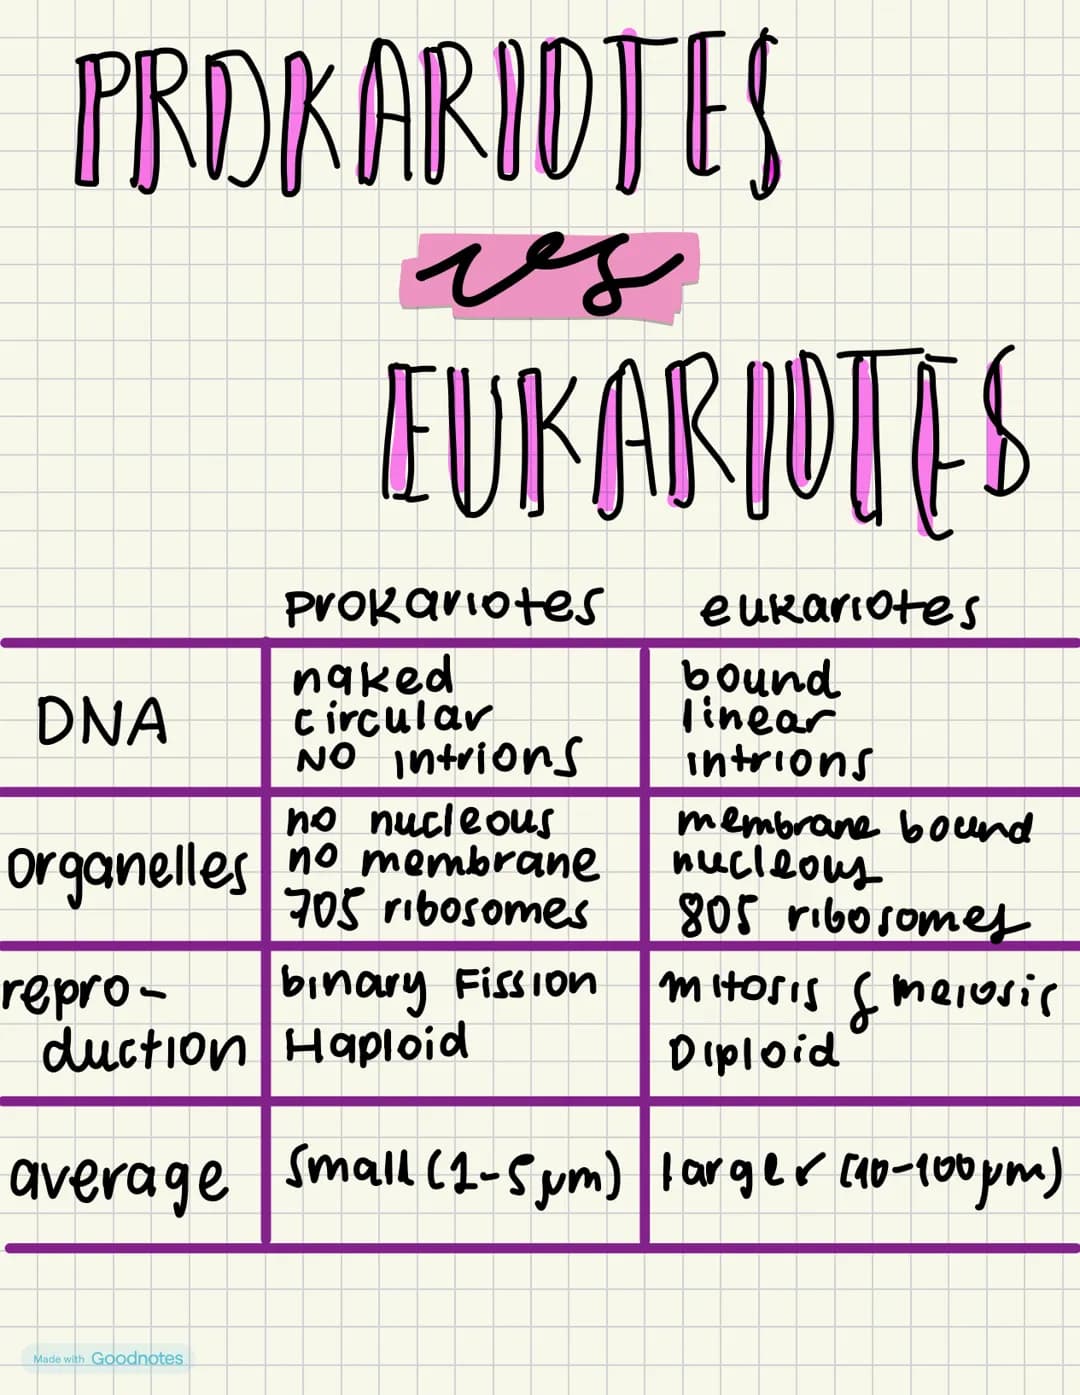 PROKARIOTES
vs
EUKARIOTES
prokariotes eukariotes
DNA
naked
circular
NO intrions
bound
linear
intrions
organelles
no nucleous
no membrane
70S ribosomes
membrane bound
nucleous
80S ribosomes
repro-
duction
binary Fission
Haploid
mitosis & meiosis
Diploid
average
small (1-5 µm)
larger (10-100 µm)
Made with Goodnotes